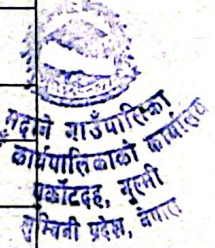 मदाने गाउँपालिका
कार्यपालिकाको कार्यालय
पर्कोटदह, गुल्मी
लुम्बिनी प्रदेश, नेपाल